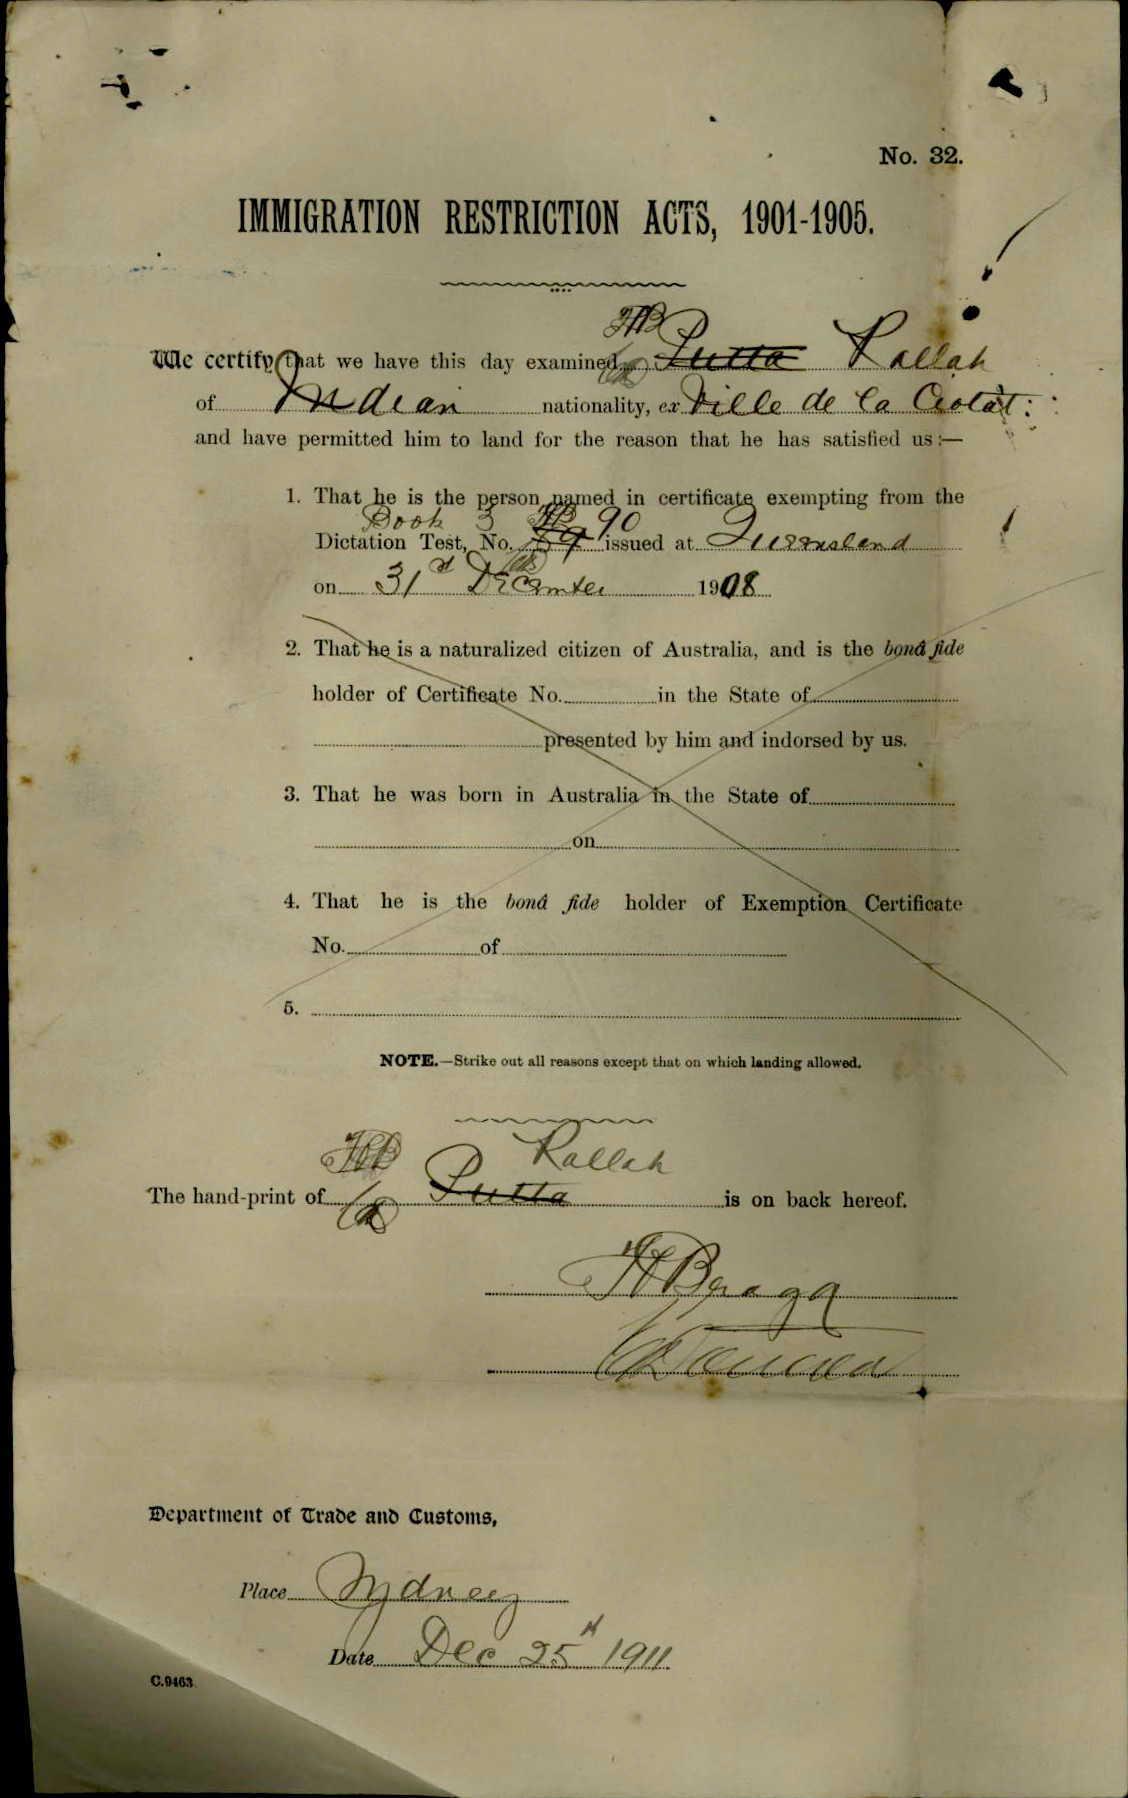 No. 32.
IMMIGRATION RESTRICTION ACTS, 1901-1905.
We certify that we have this day examined Putta Rallah
of Indian nationality, ex Ville de la Ciotat:
and have permitted him to land for the reason that he has satisfied us:—
1. That he is the person named in certificate exempting from the
Book 3 90
Dictation Test, No. 89 issued at Queensland
on 31st December 1908
2. That he is a naturalized citizen of Australia, and is the bonâ fide
holder of Certificate No. in the State of
presented by him and indorsed by us.
3. That he was born in Australia in the State of
on
4. That he is the bonâ fide holder of Exemption Certificate
No. of
5.
NOTE.—Strike out all reasons except that on which landing allowed.
Rallah
The hand-print of Putta is on back hereof.
Department of Trade and Customs,
Place Sydney
Date Dec 25th 1911
C.9463